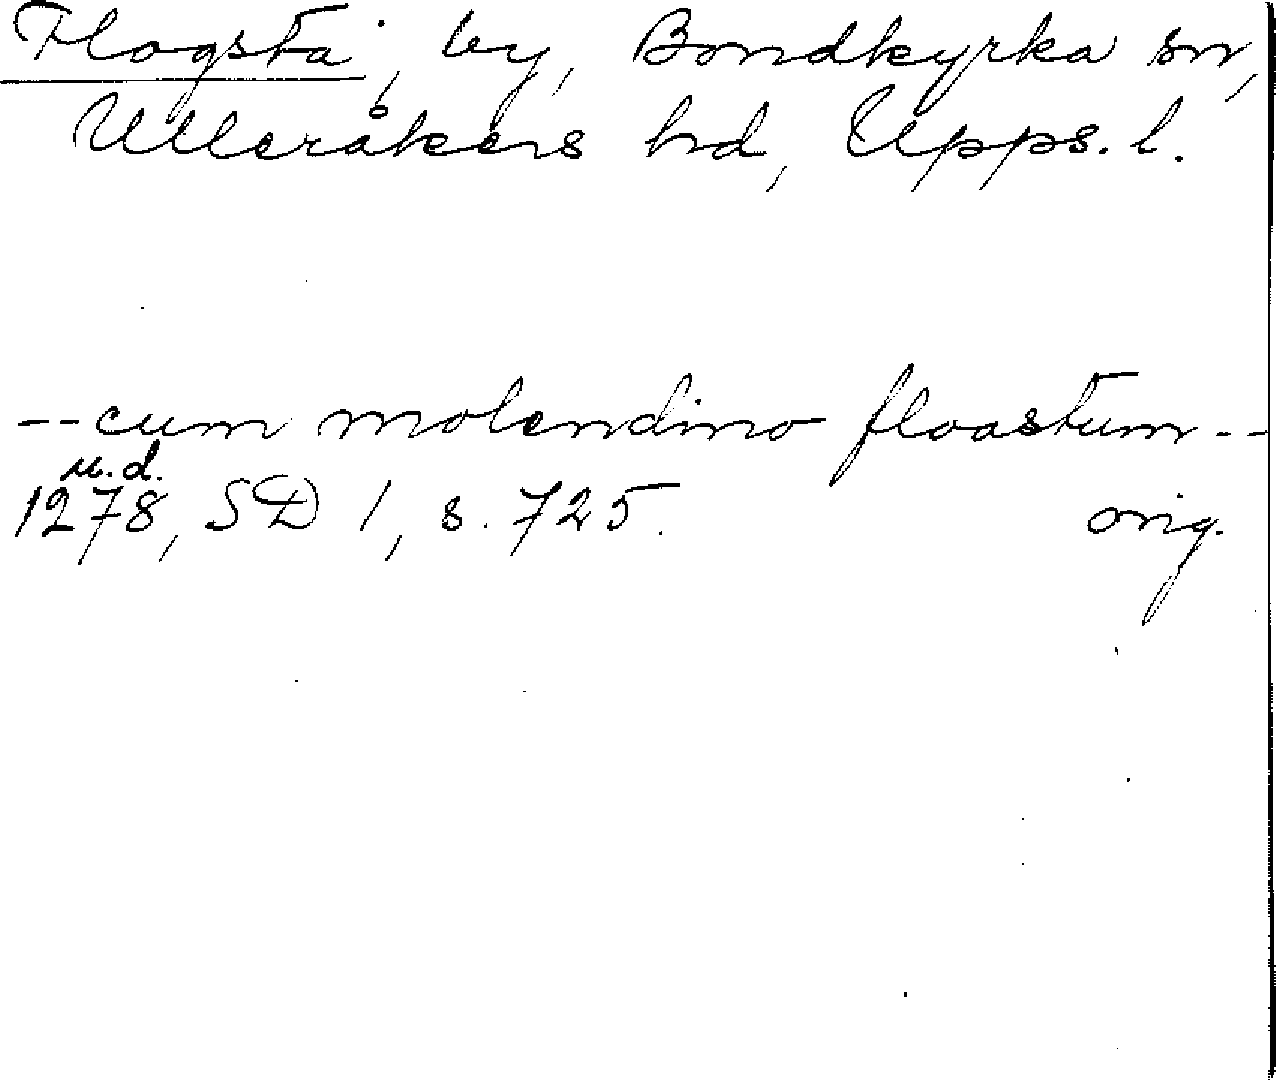 Flogsta, by, Bondkyrka sn,
Ulleråkers hd, Upps. l.
-- cum molendino floastum --
u.d.
1278, SD 1, s. 725. orig.